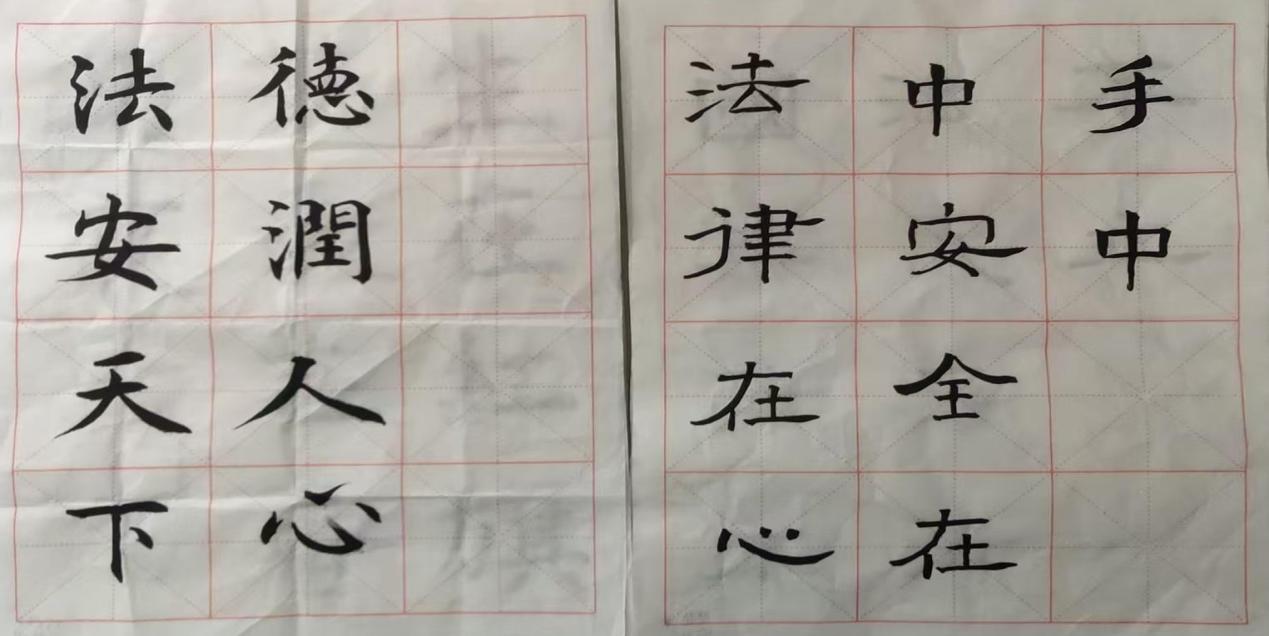 法安天下
德潤人心
法律在心
中安全在
手中